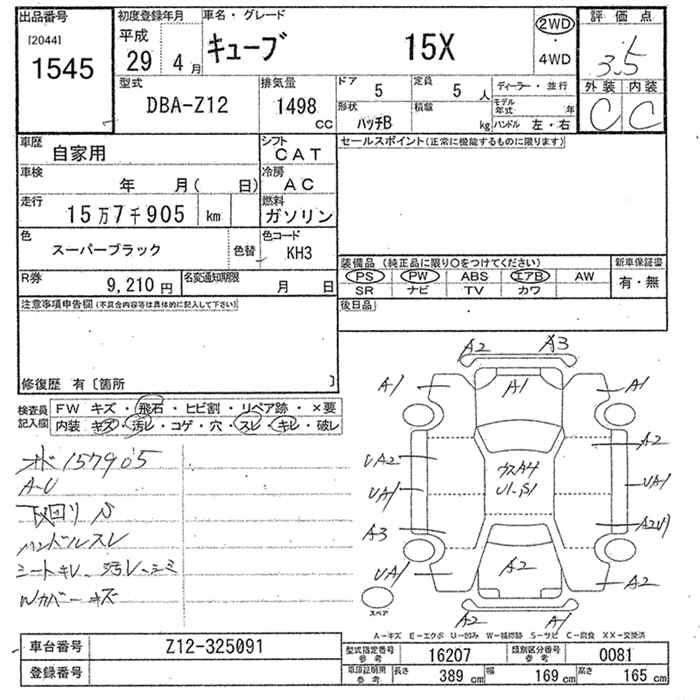 出品番号
[2044]
1545
初度登録年月
平成
29年 4月
車名・グレード
キューブ 15X
2WD
・
4WD
評価点
3.5
外装 内装
C C
型式
DBA-Z12
排気量
1498 cc
ドア
5
定員
5 人
形状
ハッチB
積載
kg
ディーラー・並行
モデル年式 年
ハンドル 左・右
車歴
自家用
シフト
CAT
車検
年 月( 日)
冷房
AC
走行
15万7千905 km
燃料
ガソリン
色
スーパーブラック
色替
色コード
KH3
R券
9,210円
名変通知期限
月 日
セールスポイント(正常に機能するものに限ります)
装備品(純正品に限り○をつけてください)
新車保証書
PS PW ABS エアB AW
有・無
SR ナビ TV カワ
後日品
注意事項申告欄(不具合内容等は具体的に記入して下さい)
修復歴 有〔箇所 〕
検査員記入欄
FW キズ・飛石・ヒビ割・リペア跡・×要
内装 キズ・汚レ・コゲ・穴・スレ・キレ・破レ
メ 157905
A-U
下回りS
ハンドルスレ
シートキレ、汚レ、シミ
Wカバーキズ
A2 A3
A1 A1 A1
A2
UA2
ウスA4
U1-S1
UA1 UA1
A3 A2U1
UA1 A2 A2
A2 A1
スペア
A-キズ E-エクボ U-凹み W-補修跡 S-サビ C-腐食 XX-交換済
車台番号
Z12-325091
登録番号
型式指定番号 参考
16207
類別区分番号 参考
0081
車庫証明用 参考
長さ 389 cm
幅 169 cm
高さ 165 cm